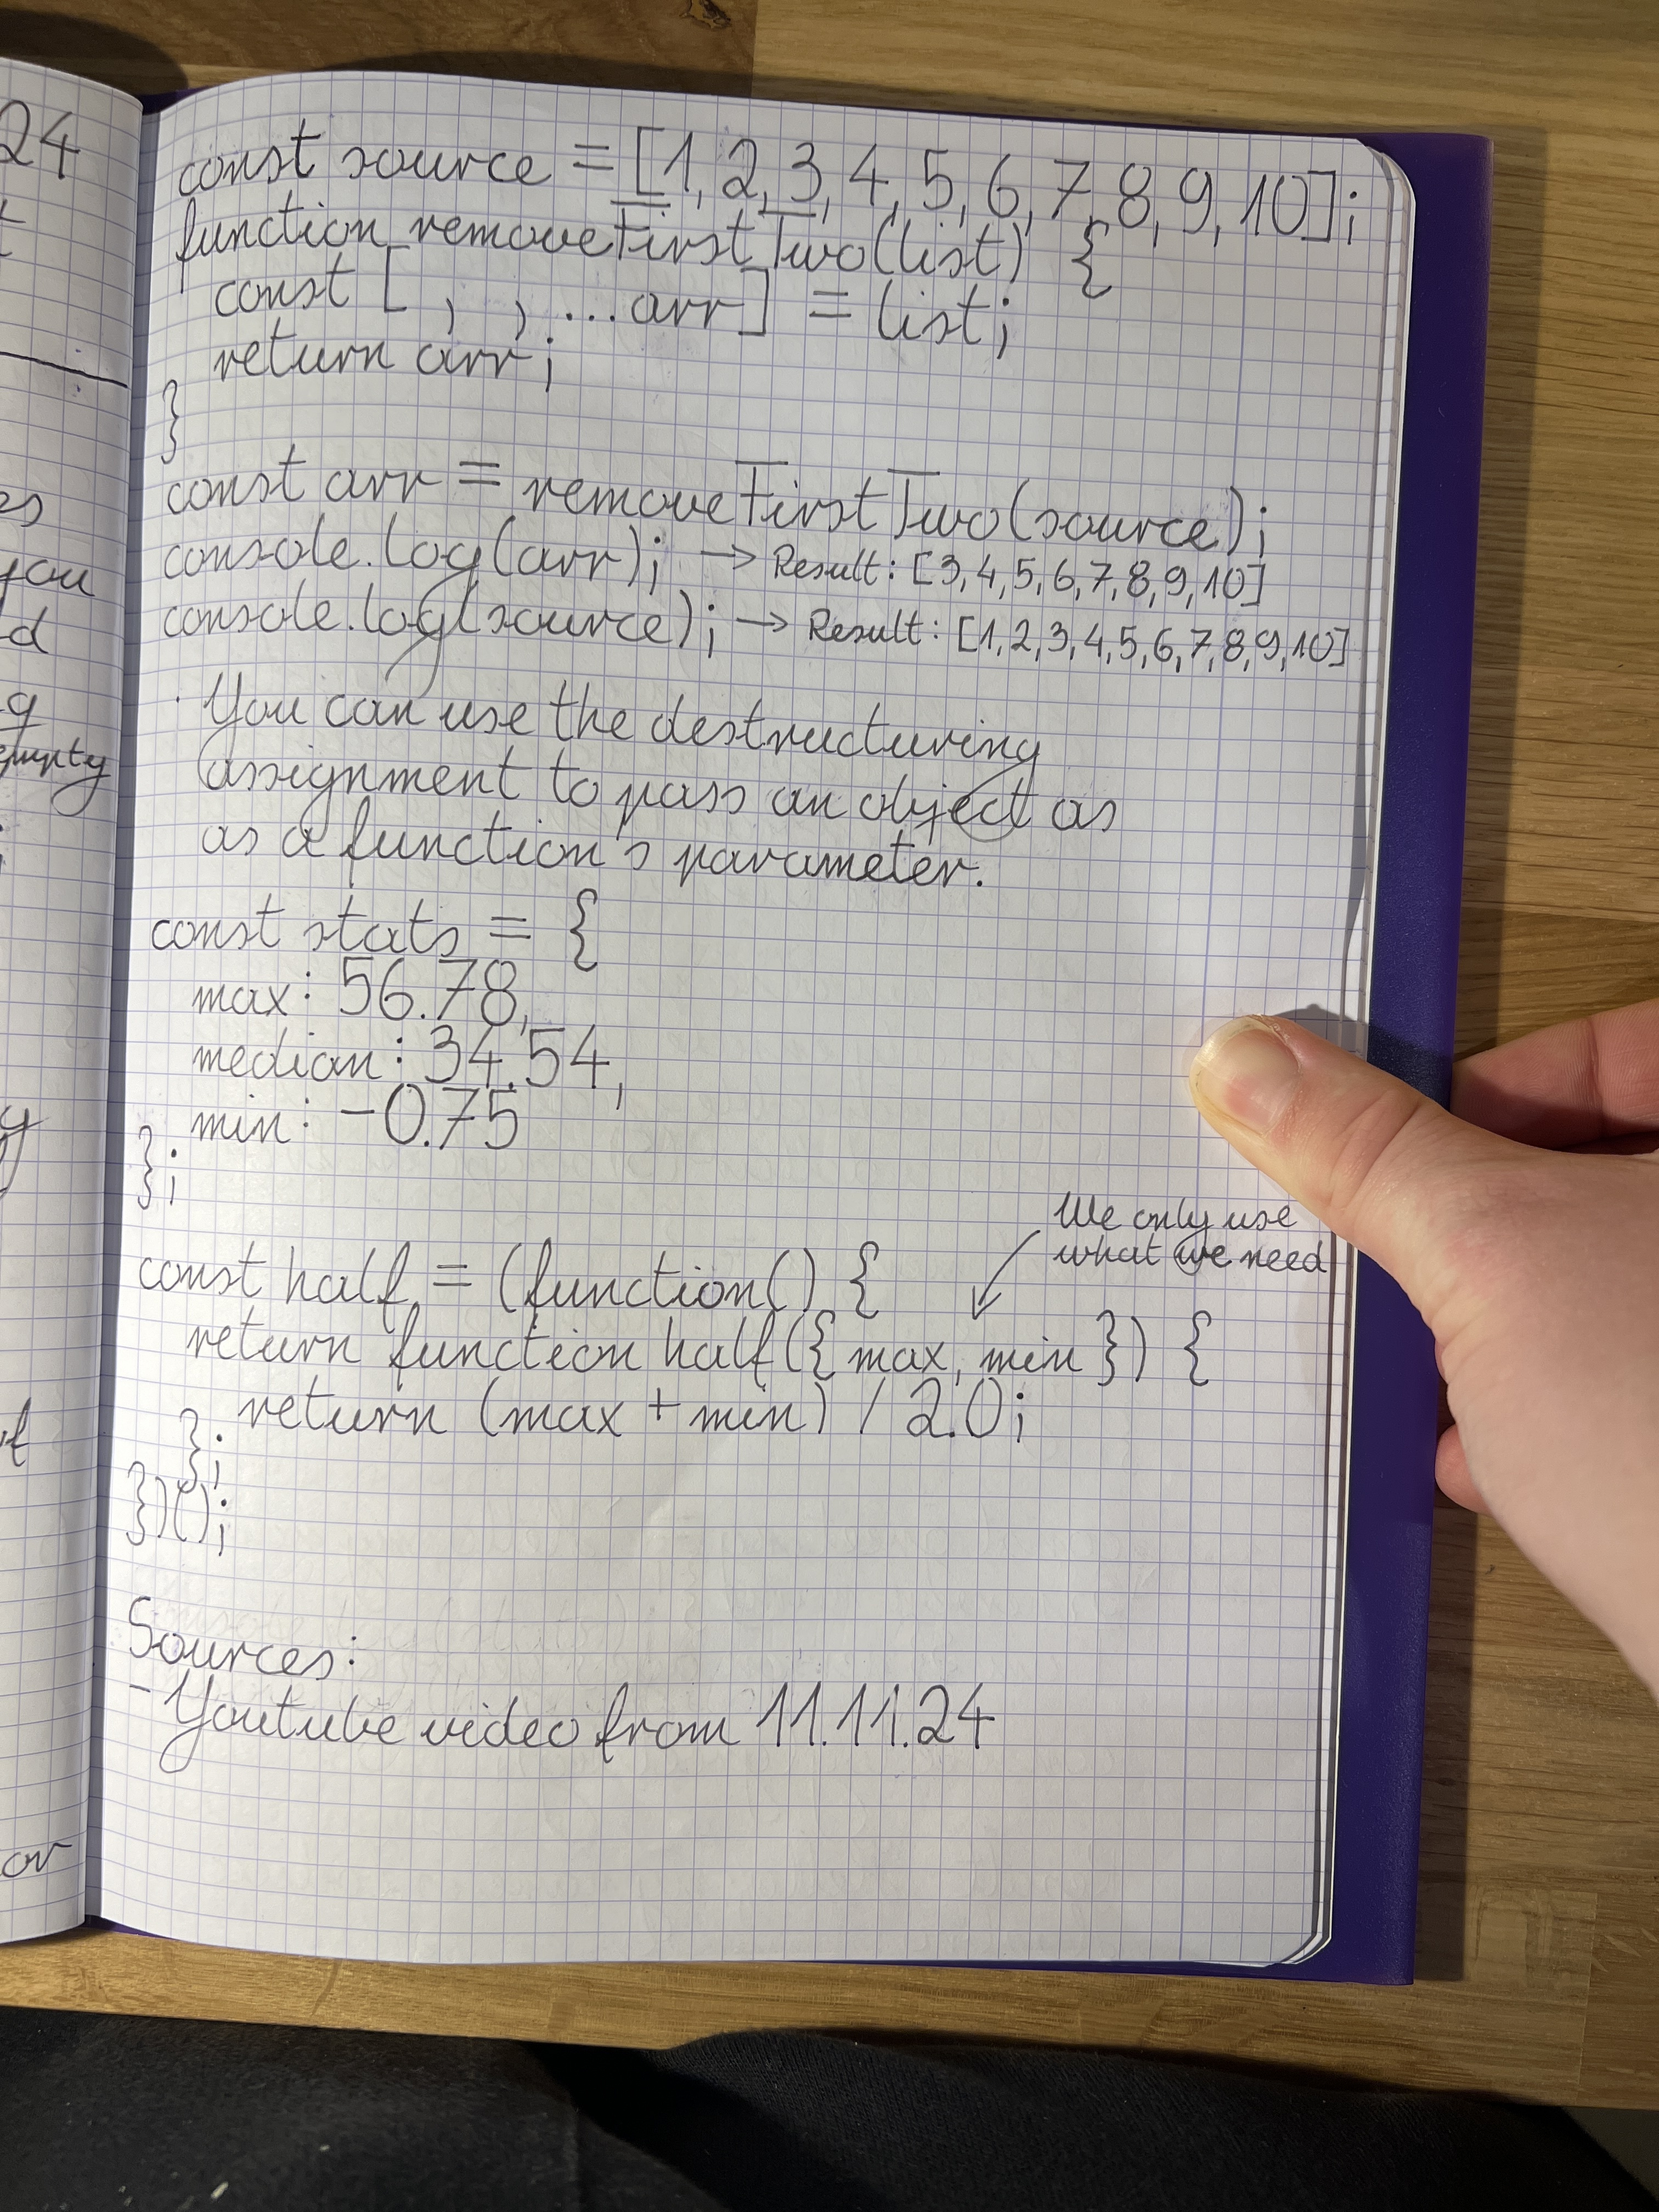 24
const source = [1,2,3,4,5,6,7,8,9,10];
function removeFirstTwo(list) {
const [ , , ...arr] = list;
return arr;
}
const arr = removeFirstTwo(source);
console.log(arr); → Result: [3,4,5,6,7,8,9,10]
console.log(source); → Result: [1,2,3,4,5,6,7,8,9,10]
you
empty
or
· You can use the destructuring
assignment to pass an object as
as a function's parameter.
const stats = {
max: 56.78,
median: 34.54,
min: -0.75
};
We only use
what we need
const half = (function() {
return function half({max, min}) {
return (max + min) / 2.0;
};
})();
Sources:
- Youtube video from 11.11.24